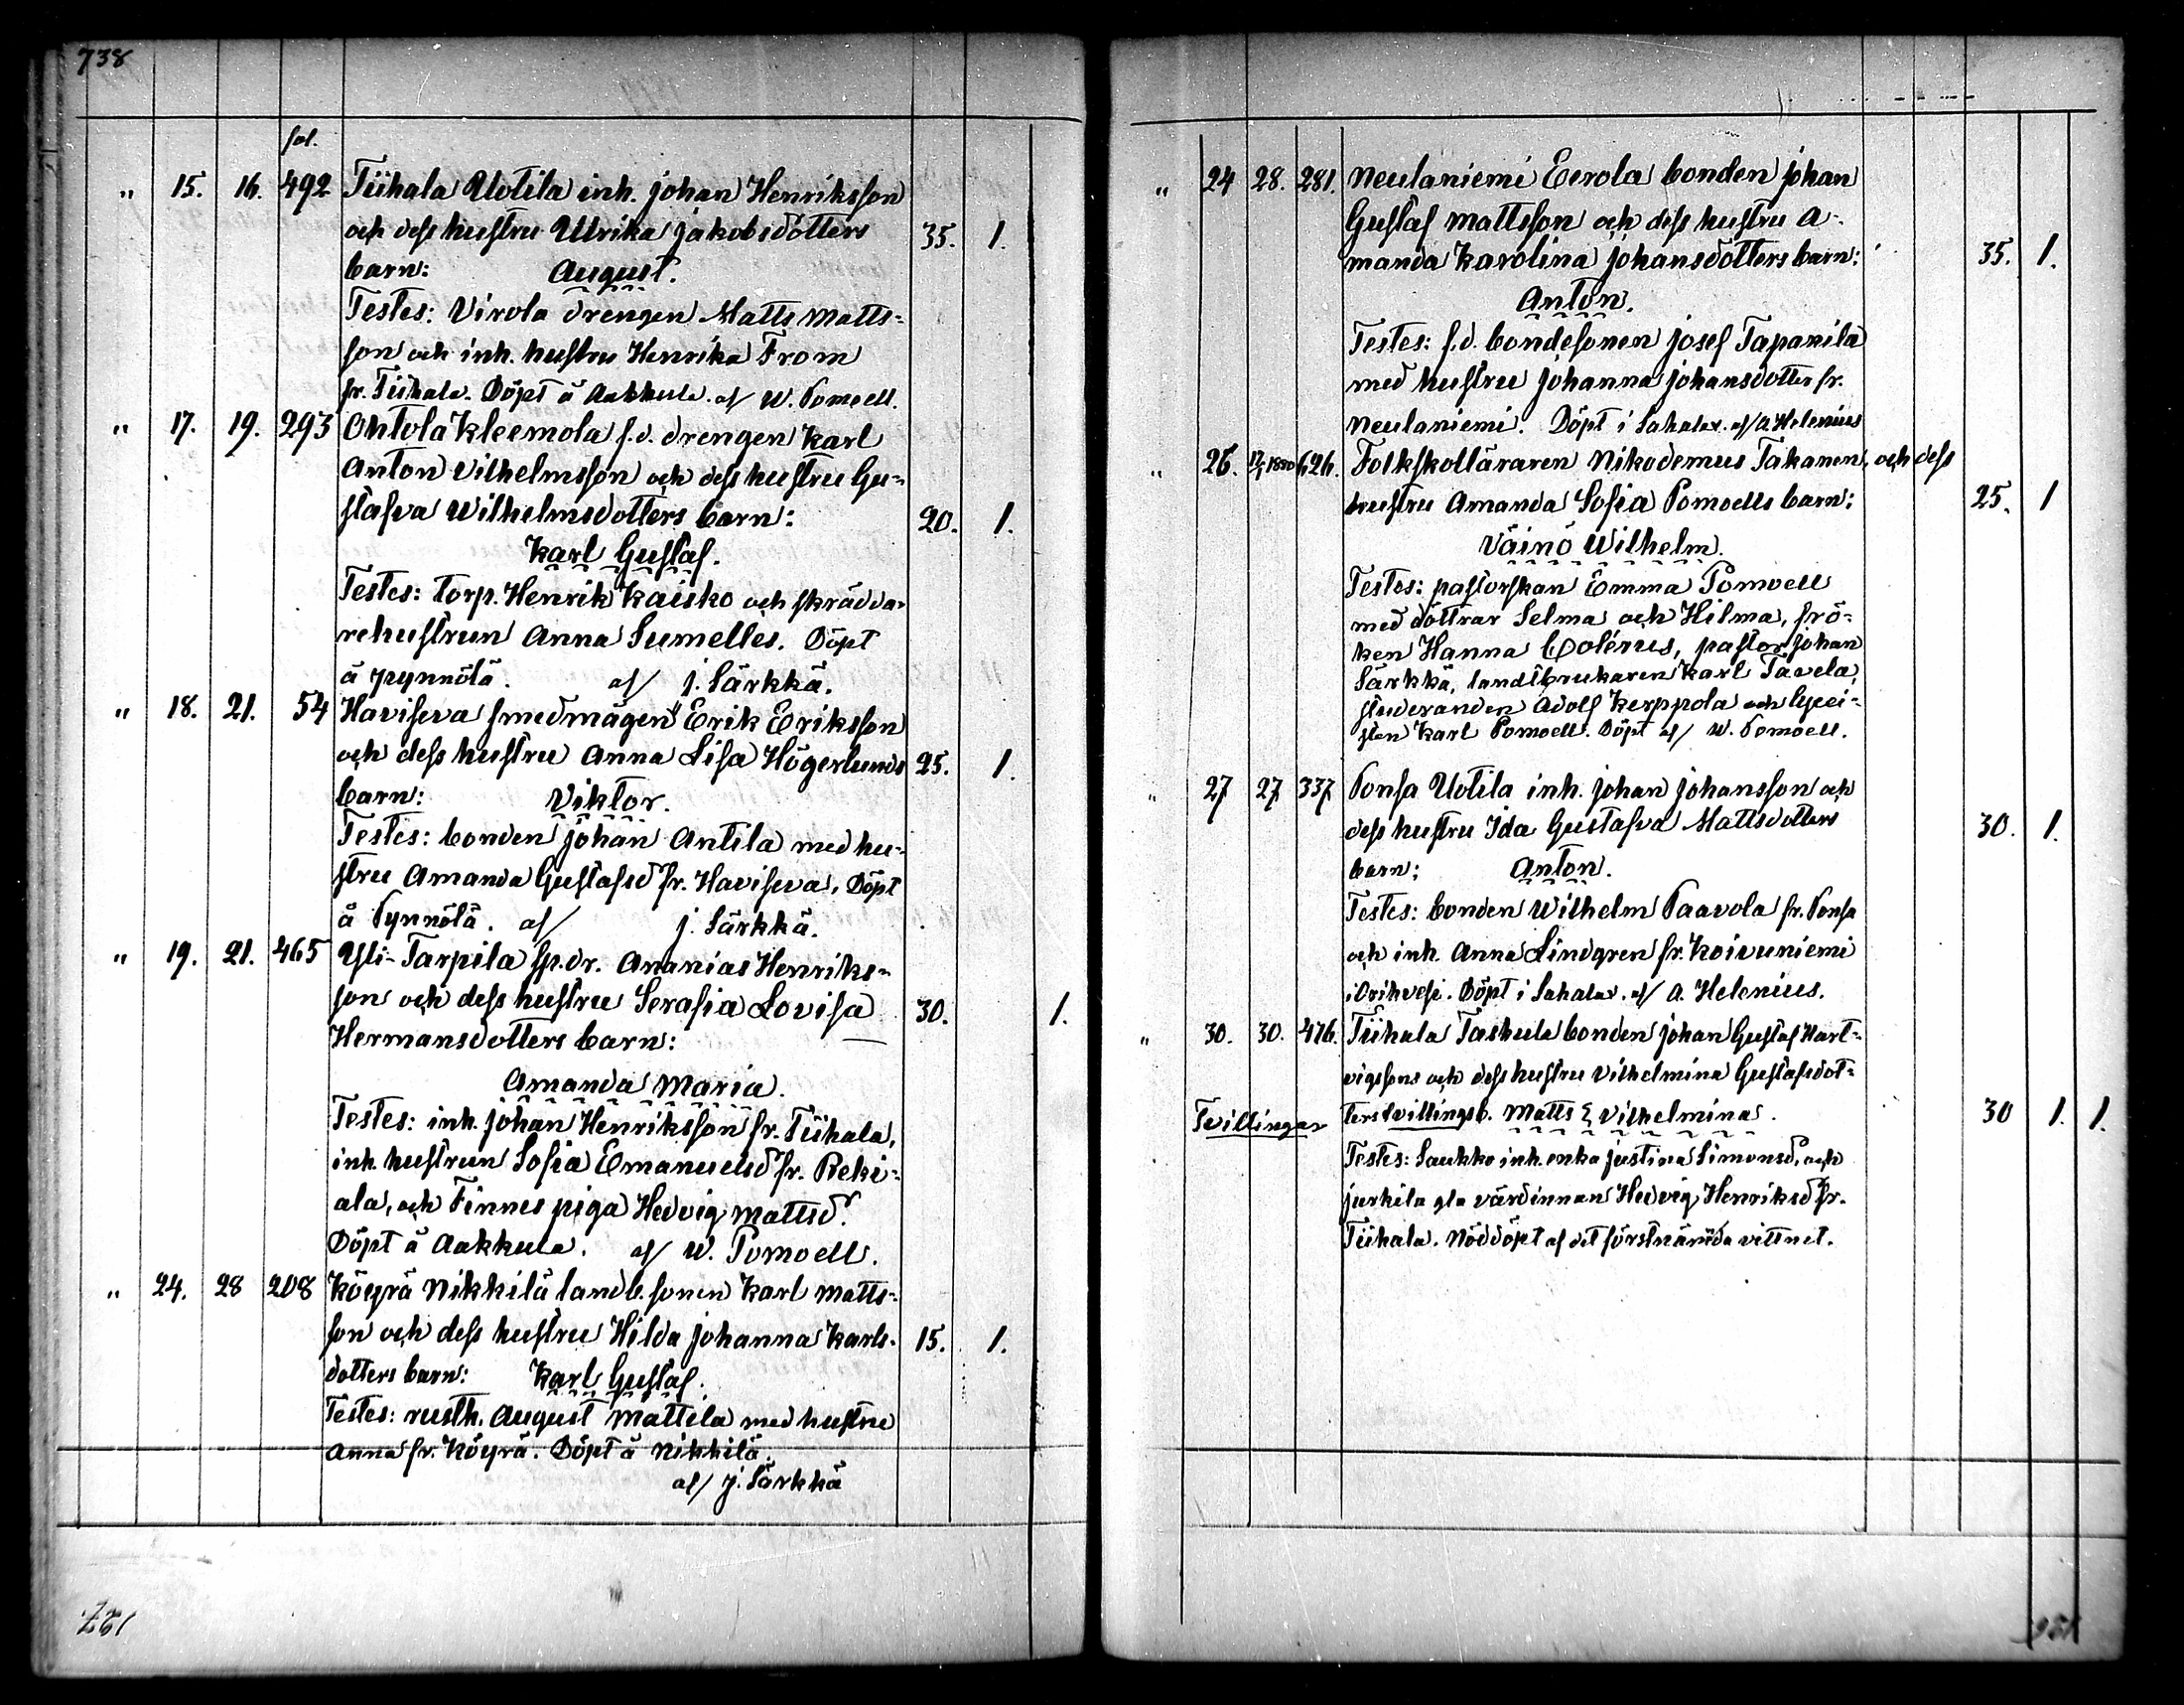 738
fol.
" 15. 16. 492 Tiihala Uotila inh. Johan Henriksson
och dess hustru Ulrika Jakobsdotters 35. 1.
barn: August.
Testes: Virola drengen Matts Matts-
son och inh. hustru Henrika From
fr. Tiihala. Döpt å Aakkula. af W. Pomoell.
" 17. 19. 293 Ohtola Kleemola f.d. drengen Karl
Anton Vilhelmsson och dess hustru Gu-
stafva Wilhelmsdotters barn: 20. 1.
Karl Gustaf.
Testes: torp. Henrik Kaisko och skrädda-
rehustrun Anna Sumelles. Döpt
å Pynnölä. af J. Särkkä.
" 18. 21. 54 Haviseva smedmågen Erik Eriksson
och dess hustru Anna Lisa Högerlunds 25. 1.
barn: Viktor.
Testes: bonden Johan Antila med hu-
stru Amanda Gustafsd fr. Haviseva. Döpt
å Pynnölä. af J. Särkkä.
" 19. 21. 465 Yli-Tarpila sp.dr. Ananias Henriks-
son och dess hustru Serafia Lovisa 30. 1.
Hermansdotters barn:
Amanda Maria.
Testes: inh. Johan Henriksson fr. Tiihala,
inh. hustrun Sofia Emanuelsd fr. Reki-
ala, och Finnes piga Hedvig Mattsd.
Döpt å Aakkula. af W. Pomoell.
" 24. 28 208 Köyrä Nikkilä landb.sonen Karl Matts-
son och dess hustru Hilda Johanna Karls- 15. 1.
dotters barn: Karl Gustaf.
Testes: rusth. August Mattila med hustru
Anna fr. Köyrä. Döpt å Nikkilä.
af J. Särkkä
127.
" 24 28. 281. Neulaniemi Eerola bonden Johan
Gustaf Mattsson och dess hustru A-
manda Karolina Johansdotters barn: 35. 1.
Anton.
Testes: f.d. bondesonen Josef Tapanila
med hustru Johanna Johansdotter fr.
Neulaniemi. Döpt i Sahalax. af A. Helenius
" 26. 1880 626. Folkskolläraren Nikodemus Takanen, och dess
hustru Amanda Sofia Pomoells barn: 25. 1
Väinö Wilhelm.
Testes: pastorskan Emma Pomoell
med döttrar Selma och Hilma, frö-
ken Hanna Colérus, pastor Johan
Särkkä, landtbrukaren Karl Tavela,
studeranden Adolf Kerppola och
Karl Pomoell. Döpt af W. Pomoell.
" 27 27 337 Ponsa Uotila inh. Johan Johansson och
dess hustru Ida Gustafva Mattsdotters 30. 1.
barn: Anton.
Testes: bonden Wilhelm Paavola fr. Ponsa
och inh. Anna Lindgren fr. Koivuniemi
i Orihvesi. Döpt i Sahalax. af A. Helenius.
" 30. 30. 476. Tiihala Taskula bonden Johan Gustaf Hart-
vigssons och dess hustru Vilhelmina Gustafsdot-
Tvillingar ters tvillingsb. Matts & Vilhelmina. 30 1. 1.
Testes: Saukko inh. enka Justina Simonsd, och
Jurkila gla värdinnan Hedvig Henriksd fr.
Tiihala. Nöddöpt af det förstnämnda vittnet.